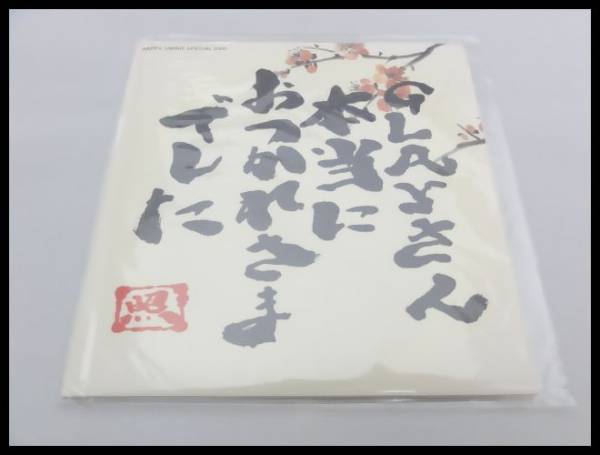 HAPPY SWING SPECIAL
GLAYさん
本当に
おつかれさま
でした
照